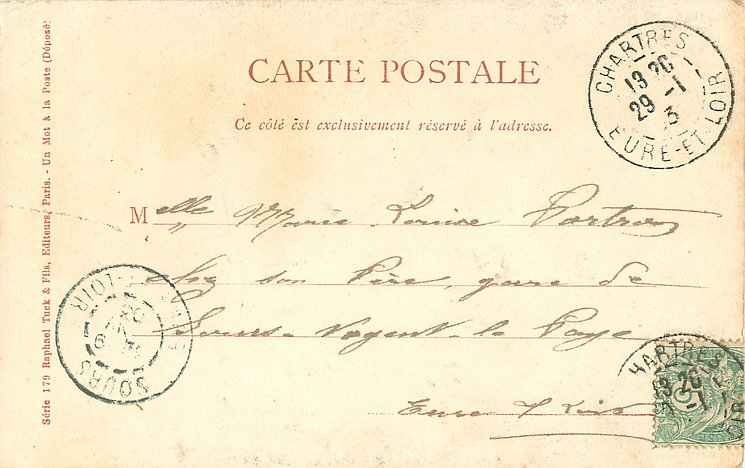 CARTE POSTALE
Ce côté est exclusivement réservé à l'adresse.
CHARTRES
13 20
29 -1
3
EURE-ET-LOIR
Melle Marie Louise
chez son Père, gare de
Sours-Nogent-le-Phaye
Eure & Loir
Série 179 Raphael Tuck & Fils, Editeurs, Paris. - Un Mot à la Poste (Déposé)
SOURS
LOIR
CHARTRES
13 20
-1
LOIR